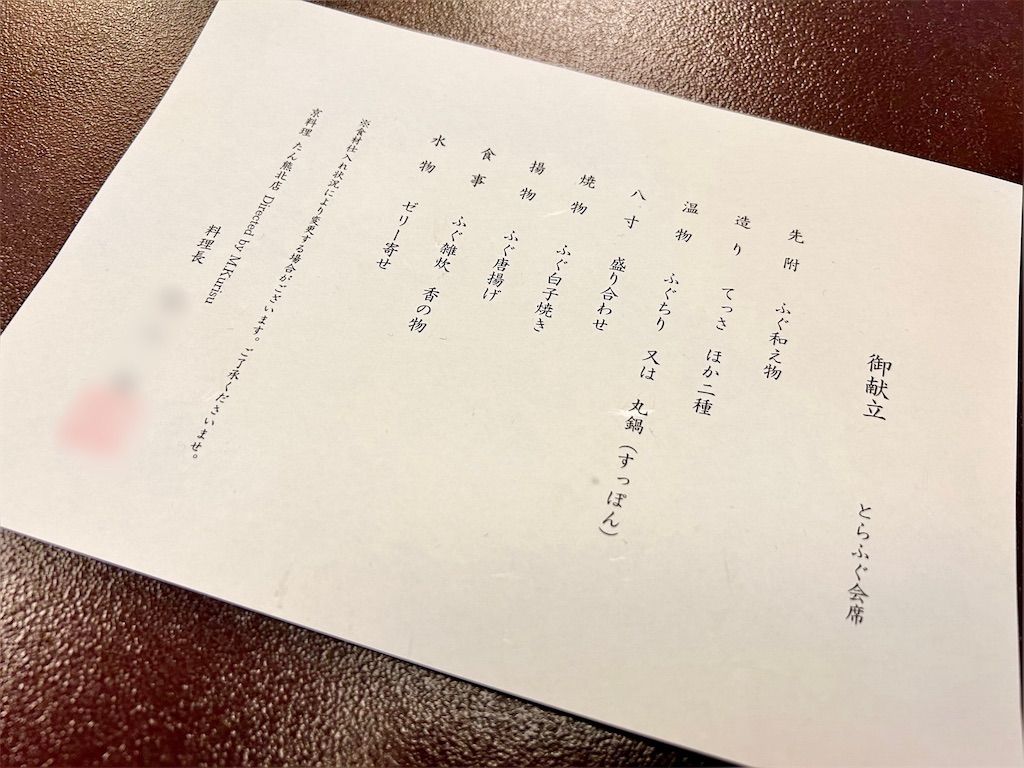 御献立 とらふぐ会席
先附 ふぐ和え物
造り てっさ ほか二種
温物 ふぐちり 又は 丸鍋(すっぽん)
八寸 盛り合わせ
焼物 ふぐ白子焼き
揚物 ふぐ唐揚げ
食事 ふぐ雑炊 香の物
水物 ゼリー寄せ
※食材仕入れ状況により変更する場合がございます。ご了承くださいませ。
京料理 たん熊北店 Directed by M.Kurisu
料理長